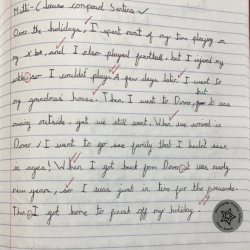 Multi-Clause compound Sentence
Over the holidays, I spent most of my time playing on
my x box, and I also played football but I injured my
so I couldn't play a few days later. I went to
my grandmas house. Then, I went to Dover, it was
but
raining outside, yet we still went. When we arrived in
Dover I want to go see family that I hadn't seen
in ages! When I got back from Dover it was nearly
new years, so I was just in time for the fireworks.
This I got home to finish off my holiday.